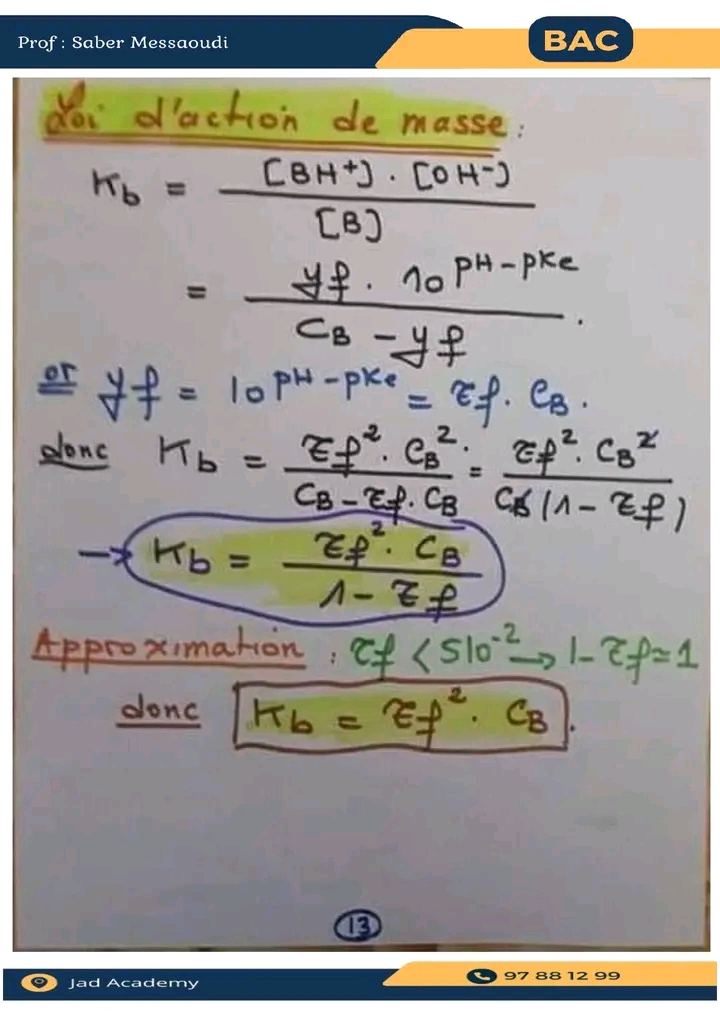 Prof : Saber Messaoudi
BAC
Loi d'action de masse :
Kb = [BH+] . [OH-] / [B]
= yf . 10^pH-pKe / CB - yf .
or yf = 10^pH-pKe = τf . CB .
donc Kb = τf² . CB² . / CB - τf . CB = τf² . CB² / CB (1 - τf)
→ Kb = τf² . CB / 1 - τf
Approximation : τf < 5 10^-2 → 1 - τf ≃ 1
donc Kb = τf² . CB .
13
Jad Academy
97 88 12 99